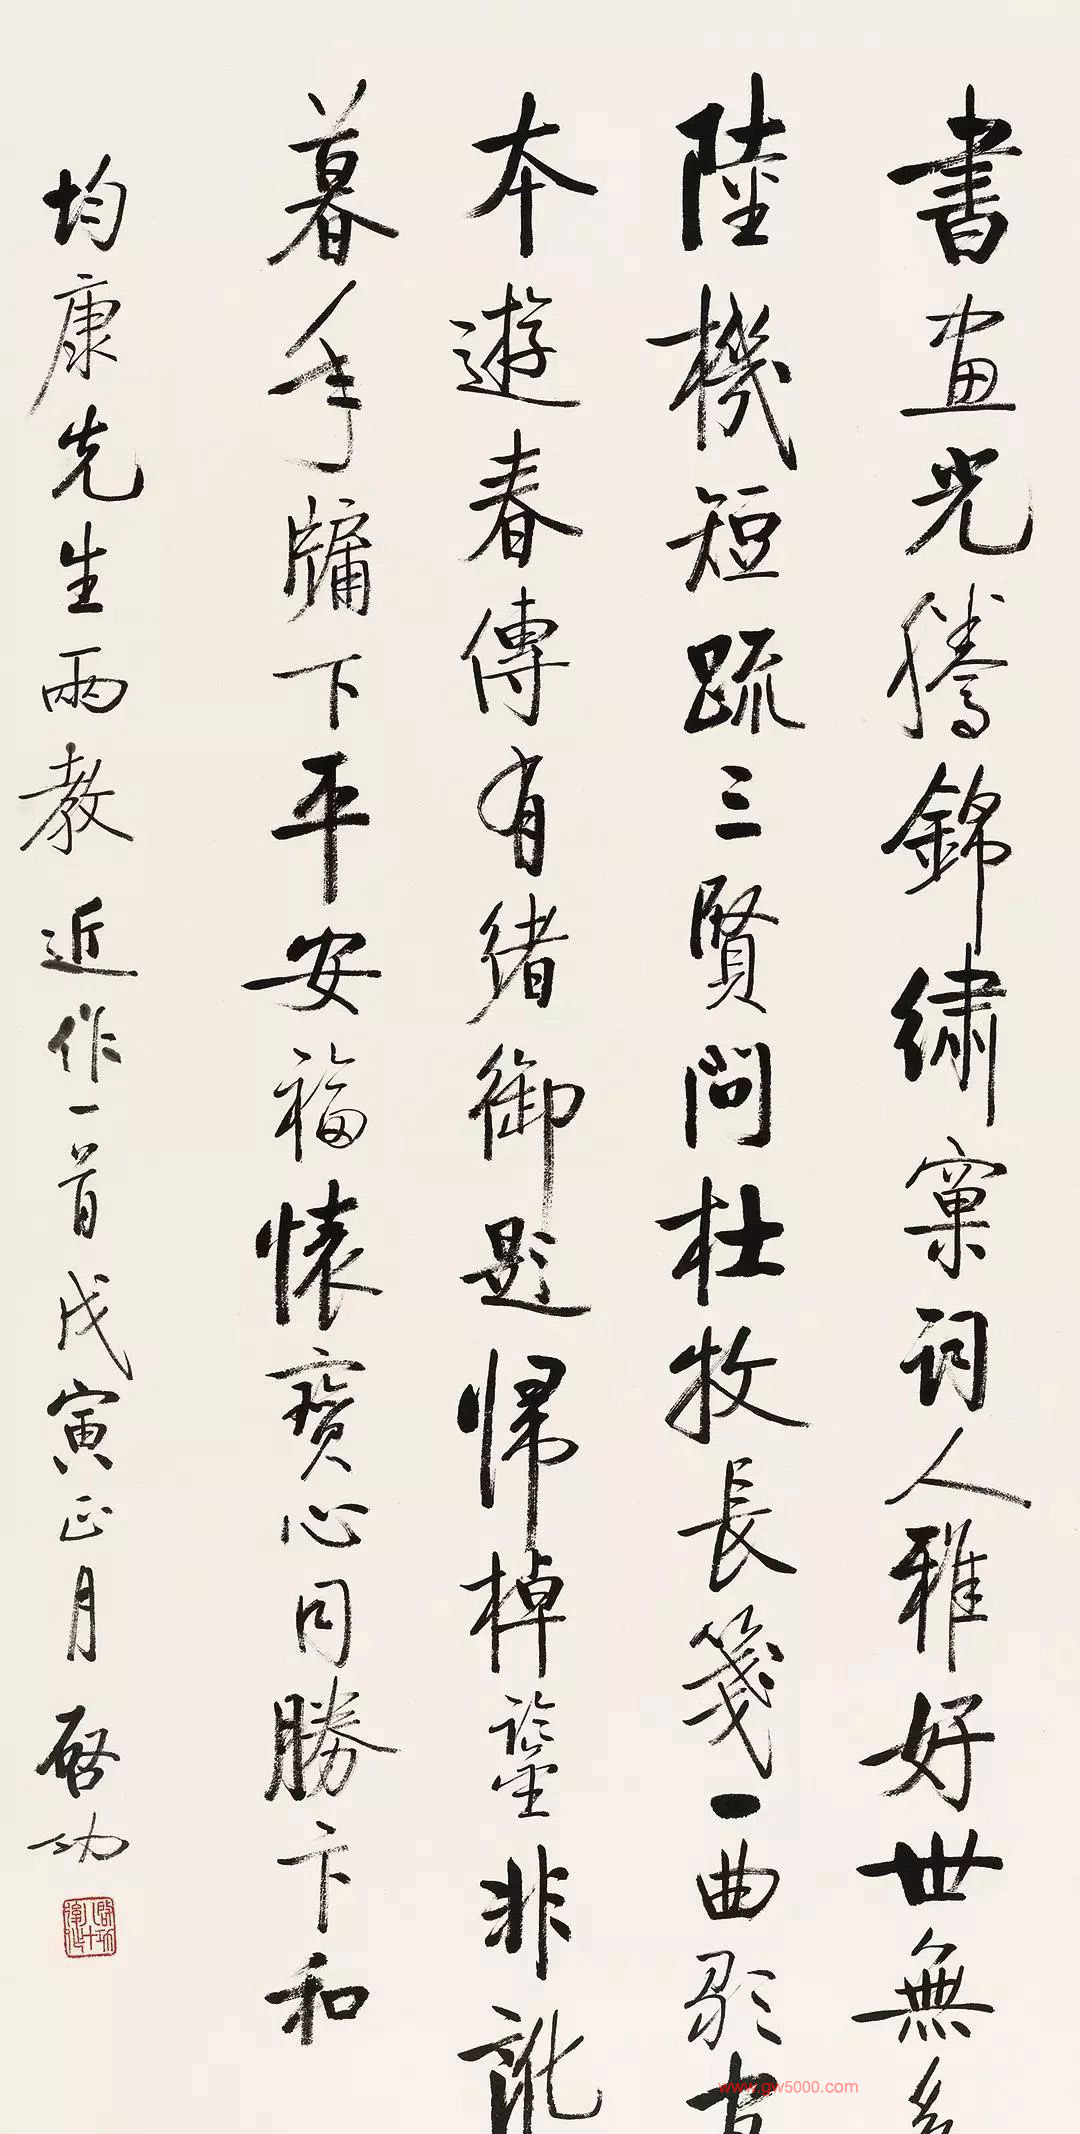 書画光騰錦繡窠詞人雅好世無多
陸機短疏三賢問杜牧長箋一曲歌古
本遊春傳有緒御題歸棹鑒非訛
暮年牖下平安福懷寶心同勝卞和
均康先生兩教近作一首戊寅正月啓功
www.gw5000.com